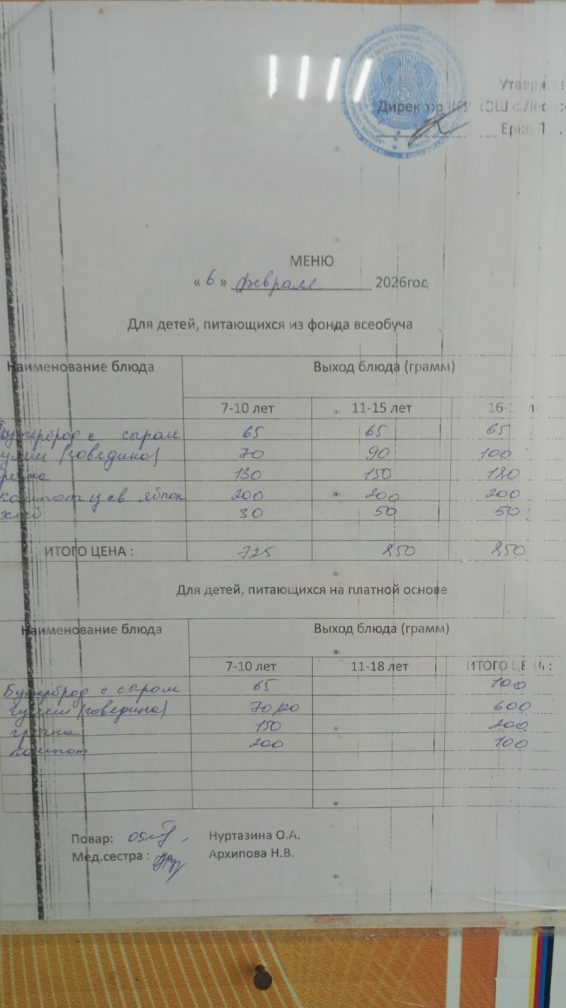 Директор
МЕНЮ
« 6 » февраля 2026год
Для детей, питающихся из фонда всеобуча
Наименование блюда Выход блюда (грамм)
7-10 лет 11-15 лет 16-
Бутерброд с сыром 65 65 65
гуляш (говядина) 70 90 100
гречка 130 150 180
компот из св яблок 200 200 200
хлеб 30 50 50
ИТОГО ЦЕНА : 725 850 850
Для детей, питающихся на платной основе
Наименование блюда Выход блюда (грамм)
7-10 лет 11-18 лет ИТОГО ЦЕНА :
Бутерброд с сыром 65 100
гуляш (говядина) 600
гречка 150 200
компот 200 100
Повар: Нуртазина О.А.
Мед.сестра : Архипова Н.В.